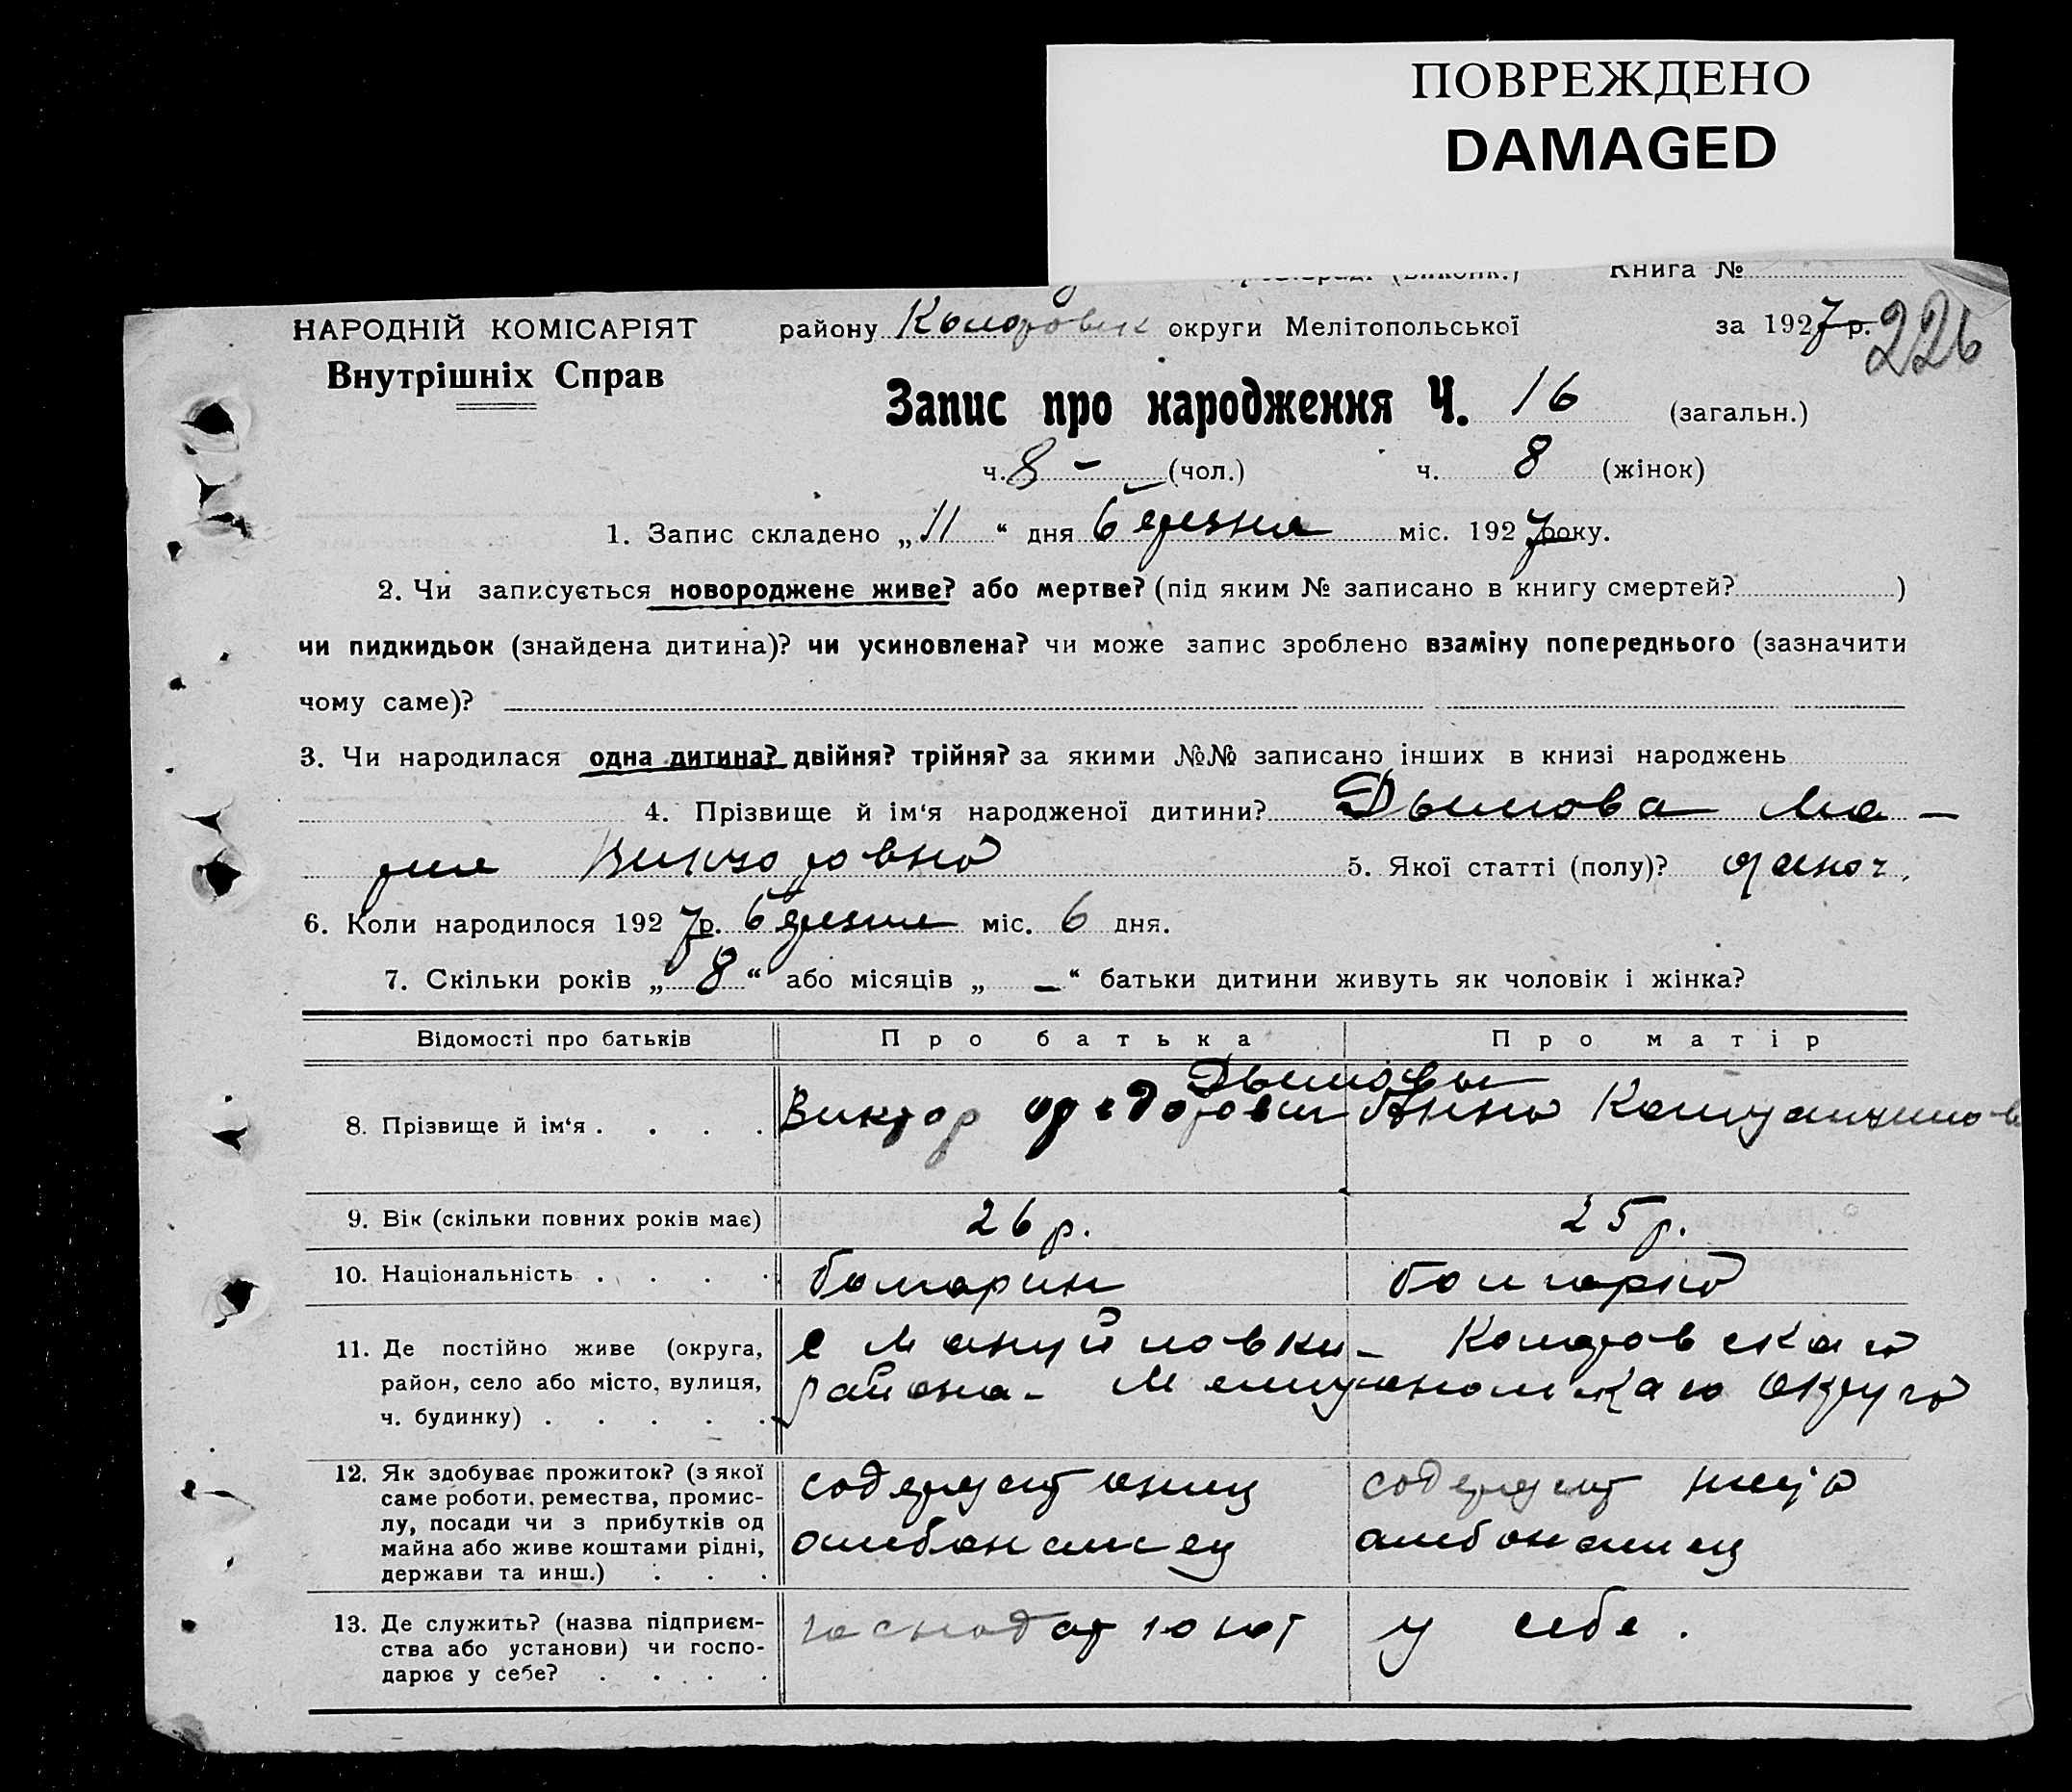 ПОВРЕЖДЕНО
DAMAGED
Книга №
НАРОДНІЙ КОМІСАРІЯТ
району округи Мелітопольської
за 1927 р. 226
Внутрішніх Справ
Запис про народження Ч. 16 (загальн.)
ч. 8 - (чол.) ч. 8 (жінок)
1. Запис складено „11“ дня березня міс. 1927 року.
2. Чи записується новороджене живе? або мертве? (під яким № записано в книгу смертей? )
чи пидкидьок (знайдена дитина)? чи усиновлена? чи може запис зроблено взаміну попереднього (зазначити
чому саме)?
3. Чи народилася одна дитина? двійня? трійня? за якими №№ записано інших в книзі народжень
4. Прізвище й ім‘я народженої дитини? Дымова Ма-
рия Викторовна 5. Якої статті (полу)?
6. Коли народилося 1927 р. березня міс. 6 дня.
7. Скільки років „8“ або місяців „—“ батьки дитини живуть як чоловік і жінка?
Відомості про батьків
Про батька
Про матір
Дымовы
8. Прізвище й ім‘я . . . .
Виктор Федорович
Анна
9. Вік (скільки повних років має)
26 р.
25 р.
10. Національність . . . .
болгарин
болгарка
11. Де постійно живе (округа,
район, село або місто, вулиця,
ч. будинку) . . . . .
с Мануйловки -
района -
12. Як здобуває прожиток? (з якої
саме роботи, ремества, промис-
лу, посади чи з прибутків од
майна або живе коштами рідні,
держави та инш.) . . .
13. Де служить? (назва підприєм-
ства або установи) чи госпо-
дарює у себе? . . . .
у себе.